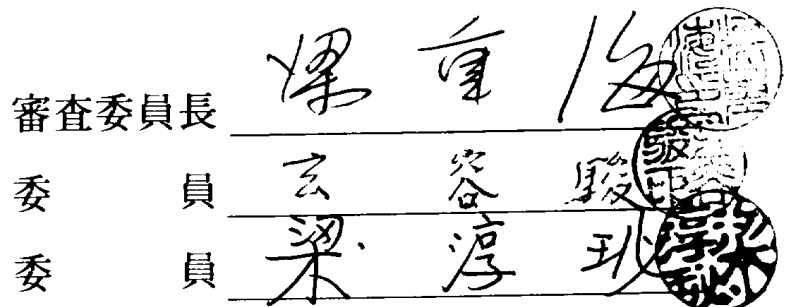 審査委員長 梁 重 海
委 員 玄 容 駿
委 員 梁 淳 珌